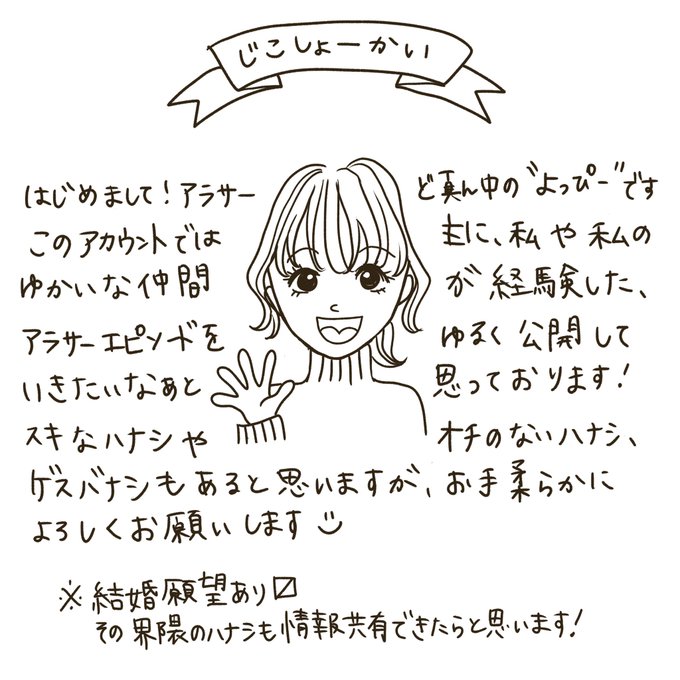 じこしょーかい
はじめまして！アラサーど真ん中の"よっぴー"です
このアカウントでは主に、私や私の
ゆかいな仲間が経験した、
アラサーエピソードをゆるく公開して
いきたいなぁと思っております！
スキなハナシやオチのないハナシ、
ゲスバナシもあると思いますが、お手柔らかに
よろしくお願いします
※結婚願望あり☑
その界隈のハナシも情報共有できたらと思います！